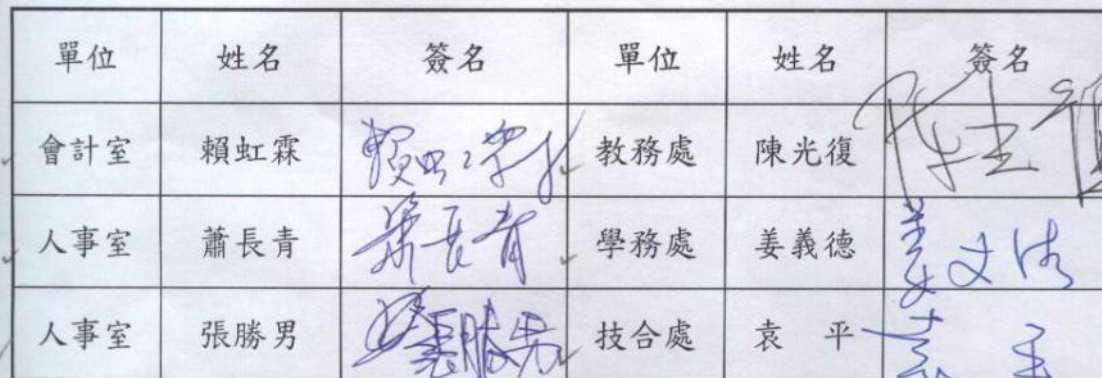 單位 姓名 簽名 單位 姓名 簽名
會計室 賴虹霖 賴虹霖 教務處 陳光復
人事室 蕭長青 蕭長青 學務處 姜義德
人事室 張勝男 張勝男 技合處 袁 平 袁 平